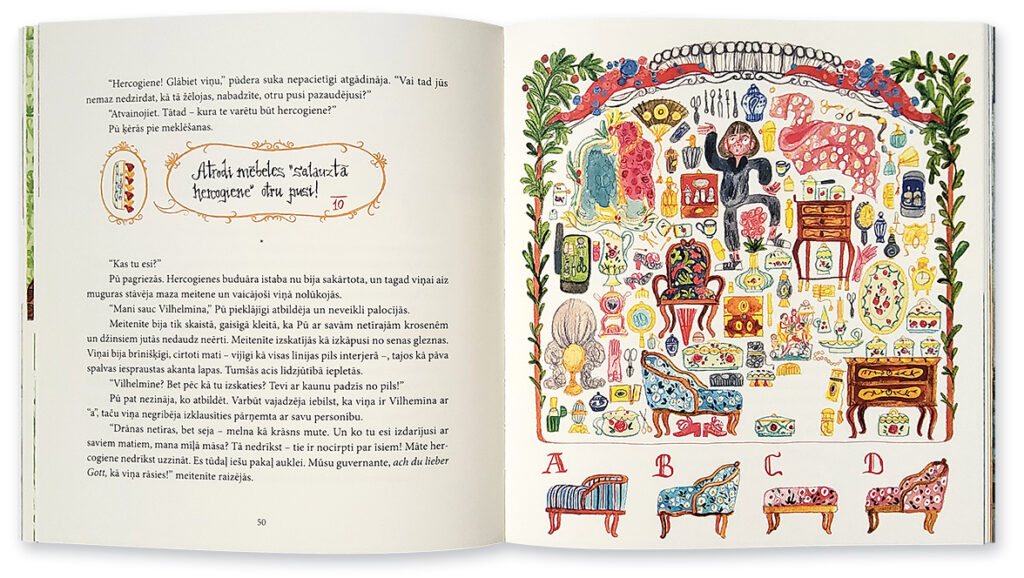 “Hercogiene! Glābiet viņu,” pūdera suka nepacietīgi atgādināja. “Vai tad jūs
nemaz nedzirdat, kā tā žēlojas, nabadzīte, otru pusi pazaudējusi?”
“Atvainojiet. Tātad – kura te varētu būt hercogiene?”
Pū ķērās pie meklēšanas.
Atrodi mēbeles "salauztā
hercogiene" otru pusi!
10
*
“Kas tu esi?”
Pū pagriezās. Hercogienes buduāra istaba nu bija sakārtota, un tagad viņai aiz
muguras stāvēja maza meitene un vaicājoši viņā nolūkojās.
“Mani sauc Vilhelmīna,” Pū pieklājīgi atbildēja un neveikli palocījās.
Meitenīte bija tik skaistā, gaisīgā kleitā, ka Pū ar savām netīrajām krosenēm
un džinsiem jutās nedaudz neērti. Meitenīte izskatījās kā izkāpusi no senas gleznas.
Viņai bija brīnišķīgi, cirtoti mati – vijīgi kā visas līnijas pils interjerā –, tajos kā pāva
spalvas iespraustas akanta lapas. Tumšās acis līdzjūtībā iepletās.
“Vilhelmīne? Bet pēc kā tu izskaties? Tevi ar kaunu padzīs no pils!”
Pū pat nezināja, ko atbildēt. Varbūt vajadzēja iebilst, ka viņa ir Vilhemīna ar
“a”, taču viņa negribēja izklausīties pārņemta ar savu personību.
“Drānas netīras, bet seja – melna kā krāsns mute. Un ko tu esi izdarījusi ar
saviem matiem, mana mīļā māsa? Tā nedrīkst – tie ir nocirpti par īsiem! Māte her-
cogiene nedrīkst uzzināt. Es tūdaļ iešu pakaļ auklei. Mūsu guvernante, ach du lieber
Gott, kā viņa rāsies!” meitenīte raizējās.
50
A B C D